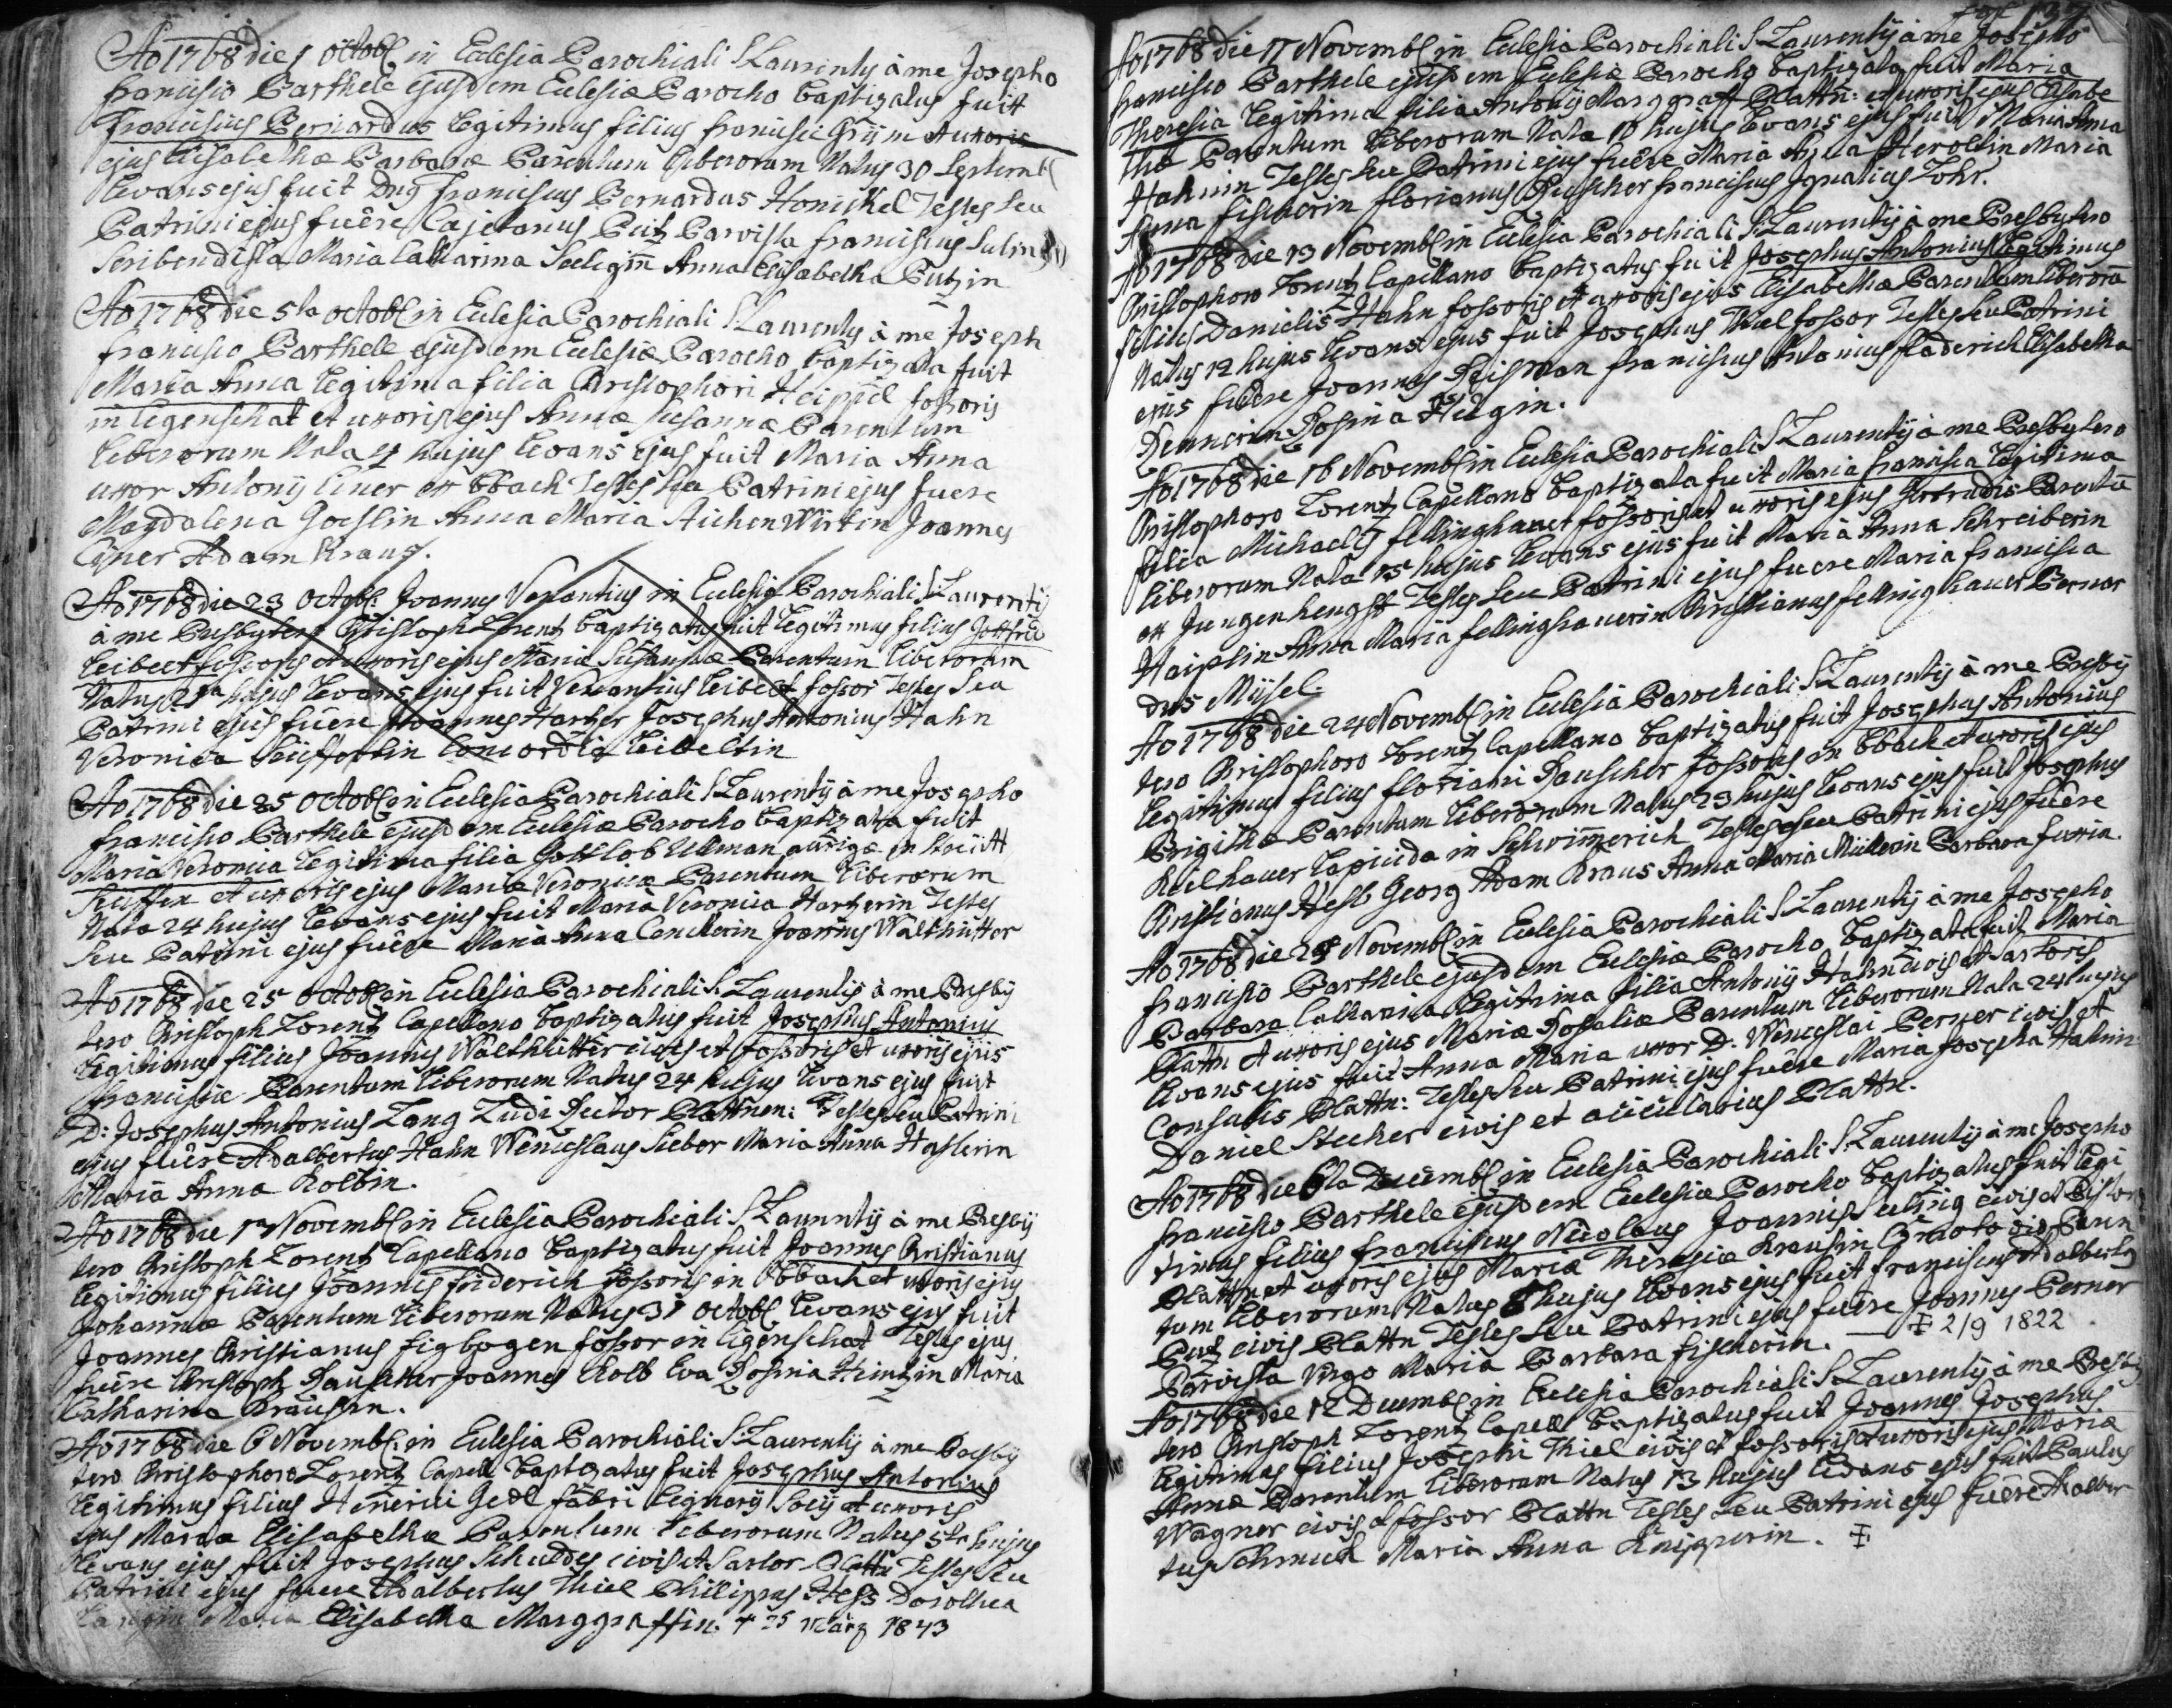 Ao 1768 die 1 octobr in Eclesia Parochiali S Laurenty à me Josepho
francisco Barthele ejusdem Eclesiæ Parocho baptizatus fuitt
Franciscus Bernardus legitimus filius francisci Grijm A uxoris
ejus Elisabethæ Barbaræ Parentum liberorum Natus 30 Septembr
levans ejus fuit Dng Franciscus Bernardus Honickel Testes seu
Patrini ejus fuêre Cajetanus Putz Parvista franciscus
Scribendista Maria Catharina Seeligin Anna Elisabetha Putzin
Ao 1768 die 5ta octobr in Eclesia Parochiali S Laurenty à me Joseph
francisco Barthele ejusdem Eclesiæ Parocho baptizata fuit
Maria Anna legitima filia Christophori Heippel fossoris
in ligenschat et uxoris ejus Annæ Susannæ Parentum
liberorum Nata 4 hujus levans ejus fuit Maria Anna
uxor Antonij Einer ex bbach Testes seu Patrini ejus fuere
Magdalena Goeslin Anna Maria Aichen Wirtin Joannes
Adam Kraus.
Ao 1768 die 23 octobr: Joannes Venantius in Eclesia Parochiali S Laurentij
à me Presbytero Christoph Lorentz baptizatus fuit legitimus filius Gottfrid
Leibelt fossoris et uxoris ejus Mariæ Susannæ Parentum liberorum
Natus hujus levans ejus fuit Venantius Leibelt fossor Testes seu
Patrini ejus fuêre Joannes Hartzer Josephus Antonius Hahn
Veronica Seiffertin Concordia Leibeltin
Ao 1768 die 25 octobr in Eclesia Parochiali S Laurentij à me Josepho
francisco Barthele ejusdem Eclesiæ Parocho baptizata fuit
Maria Veronica legitima filia Gottlob Ullman aurigæ in
et uxoris ejus Mariæ Veronicæ Parentum liberorum
Nata 24 hujus levans ejus fuit Maria Veronica Hartzerin Testes
seu Patrini ejus fuêre Maria Anna Joannes Walthütter
Ao 1768 die 25 octobr in Eclesia Parochiali S. Laurentij à me Presby
tero Christoph Lorentz Capellano baptizatus fuit Josephus Antonius
legitimus filius Joannis Walthütter civis et fossoris et uxoris ejus
franciscæ Parentum liberorum Natus 24 hujus levans ejus fuit
D: Josephus Antonius Lang Ludi Rector Plattnen: Testes seu Patrini
ejus fuêre Adalbertus Hahn Wenceslaus Sieber Maria Anna Haslerin
Maria Anna Kolbin.
Ao 1768 die 1 Novembr in Eclesia Parochiali S Laurentij à me Presby
tero Christoph Lorentz Capellano baptizatus fuit Joannes Christianus
legitimus filius Joannis friderich fossoris in bbach et uxoris ejus
Johannæ Parentum liberorum Natus 31 octobr levans ejus fuit
Joannes Christianus figbogen fossor in ligenschat Testes ejus
fuêre Christoph Rauscher Joannes Kolb Eva Rosina Heintzin Maria
Catharina Krausin.
Ao 1768 die 6 Novembr: in Eclesia Parochiali S: Laurentij à me Presby
tero Christophoro Lorentz Capell baptizatus fuit Josephus Antonius
legitimus filius Henerici Gedl fabri lignarij Socij et uxoris
ejus Mariæ Elisabethæ Parentum liberorum Natus 5ta hujus
levans ejus fuit Josephus Schuldes civis et Sartor Plattn Testes seu
Patrini ejus fuere Adalbertus Thiel Philippus Hess Dorothea
Maria Elisabetha Marggraffin. + 25 März 1843
137.
Ao 1768 die 11 Novembr in Eclesia Parochiali S Laurentij à me Josepho
francisco Barthele ejusdem Eclesiæ Parocho baptizata fuit Maria
Theresia legitima filia Antonij Marggraff Plattn: et uxoris ejus Elisabe
thæ Parentum liberorum Nata 10 hujus levans ejus fuit Maria Anna
Hahnin Testes seu Patrini ejus fuêre Maria Anna Heroldin Maria
Anna fischerin florianus Rauscher franciscus Ignatius Lohr.
Ao 1768 die 13 Novembr in Eclesia Parochiali S Laurentij à me Presbytero
Christophoro Lorentz Capellano baptizatus fuit Josephus Antonius legitimus
filius Danielis Hahn fossoris et uxoris ejus Elisabethæ Parentum liberorū
Natus 12 hujus levans ejus fuit Josephus Thiel fossor Testes seu Patrini
ejus fuêre Joannes Reisman franciscus Antonius fladerich Elisabetha
Rennerin Rosina Hilgin.
Ao 1768 die 16 Novembr in Eclesia Parochiali S Laurentij à me Presbytero
Christophoro Lorentz Capellano baptizata fuit Maria francisca legitima
filia Michaelis fellinghauer fossoris et uxoris ejus Gertrudis Parentū
liberorum Nata 15 hujus levans ejus fuit Maria Anna Schreiberin
ex Jungenhengst Testes seu Patrini ejus fuere Maria francisca
Haiplin Anna Maria fellinghauerin Christianus fellinghauer Bernar
dus Mijsel.
Ao 1768 die 24 Novembr in Eclesia Parochiali S Laurentij à me Presby
tero Christophoro Lorentz Capellano baptizatus fuit Josephus Antonius
legitimus filius floriani Rauscher fossoris in bbach et uxoris ejus
Brigithæ Parentum liberorum Natus 23 hujus levans ejus fuit Josephus
Keilhauer lapicida in Schwimmerich Testes seu Patrini ejus fuêre
Christianus Hess Georg Adam Kraus Anna Maria Müllerin Barbara
Ao 1768 die 24 Novembr in Eclesia Parochiali S Laurentij à me Josepho
francisco Barthele ejusdem Eclesiæ Parocho baptizata fuit Maria
Barbara Catharina legitima filia Antonij Hahn civis et Sartoris
Plattn et uxoris ejus Mariæ Rosaliæ Parentum liberorum Nata 24 hujus
levans ejus fuit Anna Maria uxor D. Wenceslai Perner civis et
Consulis Plattn: Testes seu Patrini ejus fuêre Maria Josepha Hahnin
Daniel Stecher civis et acicularius Plattn.
Ao 1768 die 6ta Decembr in Eclesia Parochiali S. Laurentij à me Josepho
francisco Barthele ejusdem Eclesiæ Parocho baptizatus fuit legi
timus filius franciscus Nicolaus Joannis Seelinig civis et Pistor
Plattn et uxoris ejus Mariæ Theresiæ Krausin Paren
tum liberorum Natus 6 hujus levans ejus fuit franciscus Adalbertus
Putz civis Plattn Testes seu Patrini ejus fuêre Joannes Perner
Parvista Virgo Maria Barbara fischerin. — ‡ 2/9 1822.
Ao 1768 die 12 Decembr in Eclesia Parochiali S Laurentij à me Presby
tero Christoph Lorentz Capell baptizatus fuit Joannes Josephus
legitimus filius Josephi Thiel civis et fossoris et uxoris ejus Mariæ
Annæ Parentum liberorum Natus 13 hujus levans ejus fuit Paulus
Wagner civis et fossor Plattn Testes seu Patrini ejus fuêre Adalber
tus Schmuck Maria Anna Knipperin. ‡